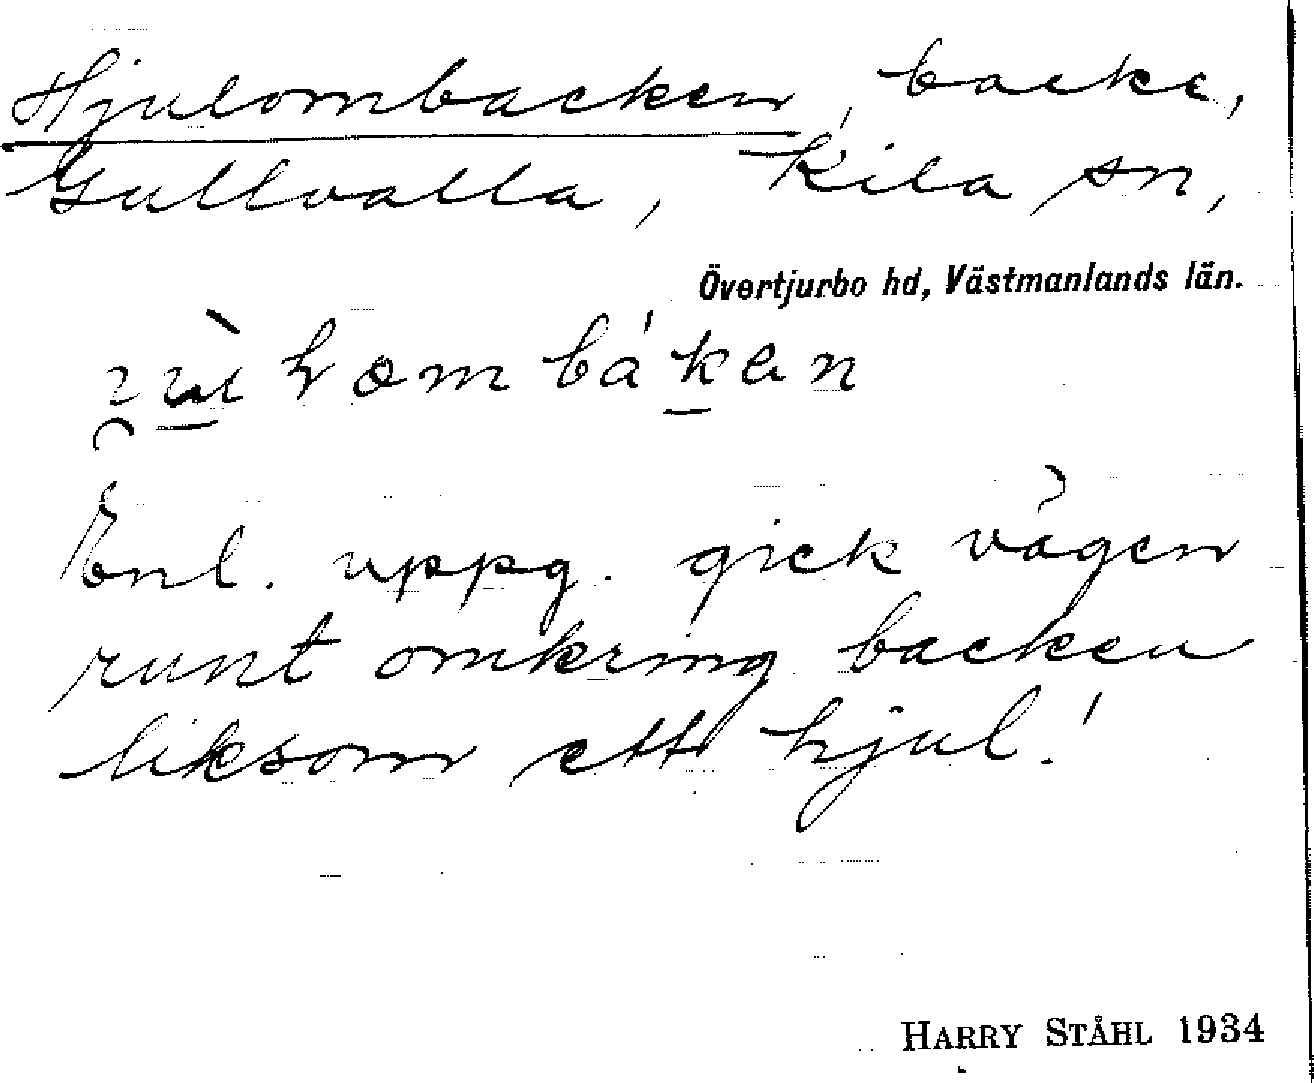 Hjulombacken, backe,
Gullvalla, Kila sn,
Övertjurbo hd, Västmanlands län.
Enl. uppg. gick vägen
runt omkring backen
liksom ett hjul!
HARRY STÅHL 1934